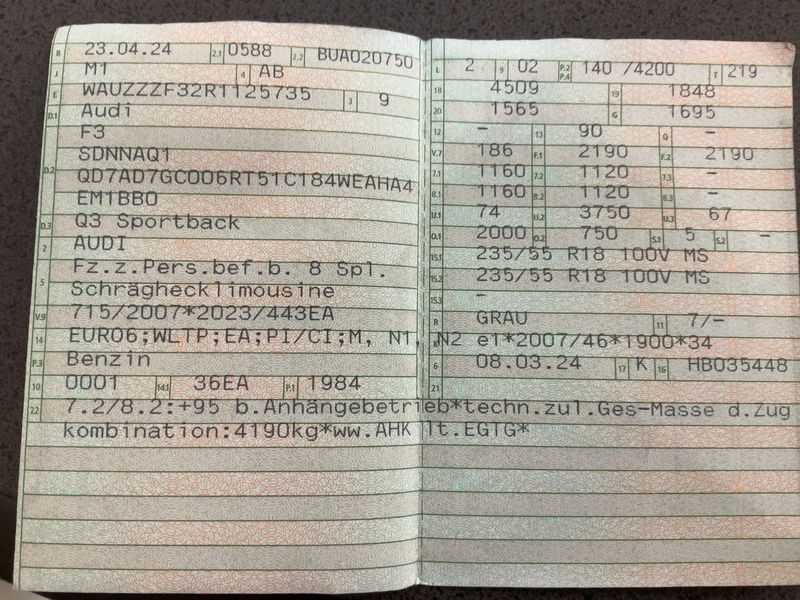 B 23.04.24 2.1 0588 2.2 BUA020750
J M1 4 AB
E WAUZZZF32R1125735 3 9
D.1 Audi
F3
D.2 SDNNAQ1
QD7AD7GC006RT51C184WEAHA4
EM1BB0
D.3 Q3 Sportback
2 AUDI
5 Fz.z.Pers.bef.b. 8 Spl.
Schräghecklimousine
V.9 715/2007*2023/443EA
14 EURO6;WLTP;EA;PI/CI;M, N1, N2
P.3 Benzin
10 0001 14.1 36EA P.1 1984
L 2 9 02 P.2 P.4 140 /4200 T 219
18 4509 19 1848
20 1565 G 1695
12 - 13 90 Q -
V.7 186 F.1 2190 F.2 2190
7.1 1160 7.2 1120 7.3 -
8.1 1160 8.2 1120 8.3 -
U.1 74 U.2 3750 U.3 67
O.1 2000 O.2 750 S.1 5 S.2 -
15.1 235/55 R18 100V MS
15.2 235/55 R18 100V MS
15.3 -
R GRAU 11 7/-
K e1*2007/46*1900*34
6 08.03.24 17 K 16 HB035448
21
22 7.2/8.2:+95 b.Anhängebetrieb*techn.zul.Ges-Masse d.Zug
kombination:4190kg*ww.AHK lt.EGTG*